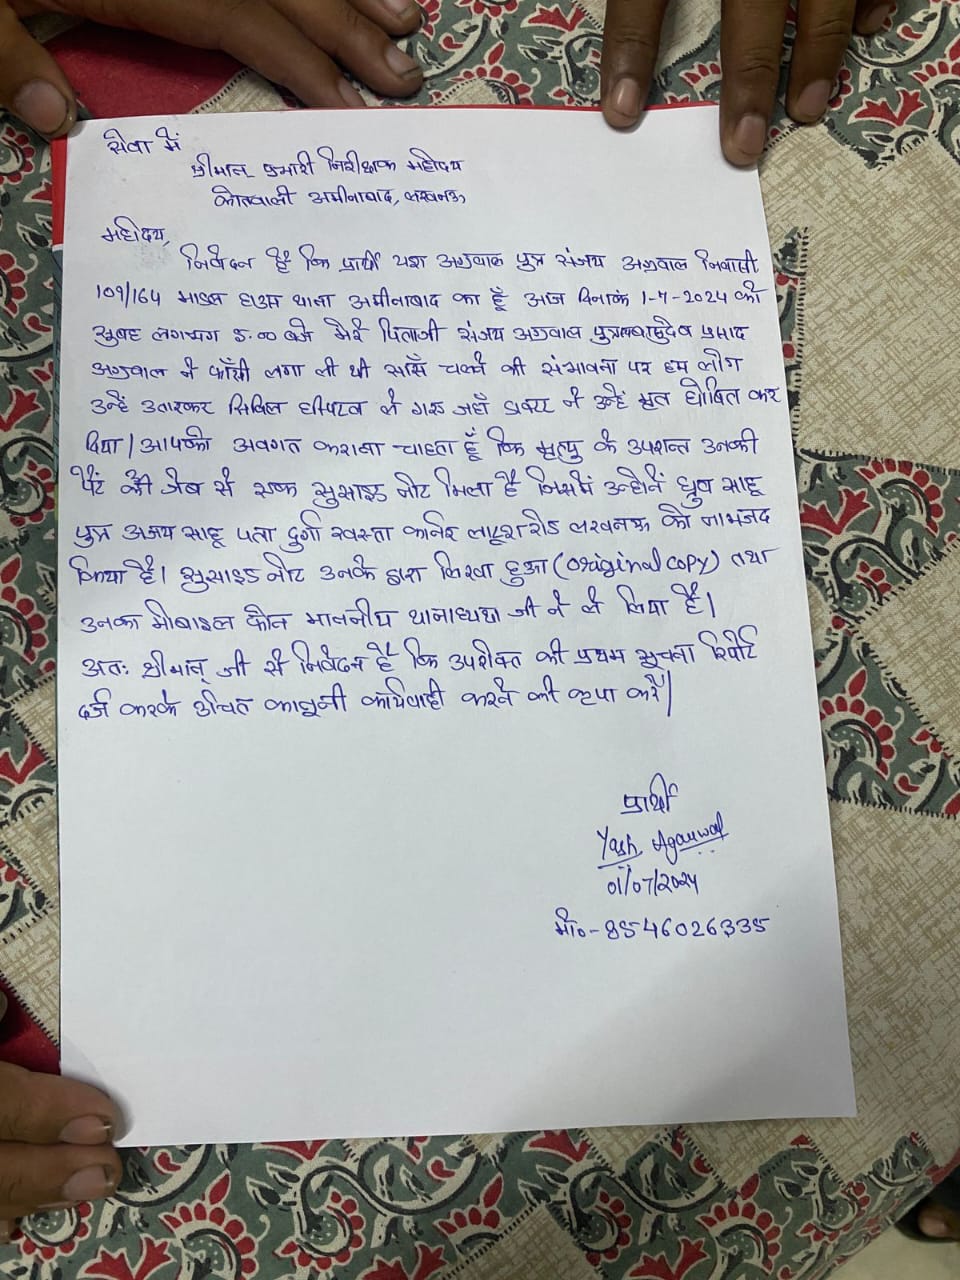 सेवा में
श्रीमान प्रभारी निरीक्षक महोदय
कोतवाली अमीनाबाद, लखनऊ
महोदय,
निवेदन है कि प्रार्थी यश अग्रवाल पुत्र संजय अग्रवाल निवासी
109/164 माडल हाउस थाना अमीनाबाद का हूँ आज दिनांक 1-7-2024 को
सुबह लगभग 5.00 बजे मेरे पिताजी संजय अग्रवाल पुत्र स्व० वासुदेव प्रसाद
अग्रवाल ने फाँसी लगा ली थी साँस चलने की संभावना पर हम लोग
उन्हें उतारकर सिविल हॉस्पिटल ले गए जहाँ डाक्टर ने उन्हें मृत घोषित कर
दिया। आपको अवगत कराना चाहता हूँ कि मृत्यु के उपरान्त उनकी
पैंट की जेब से एक सुसाइड नोट मिला है जिसमें उन्होनें ध्रुव साहू
पुत्र अजय साहू पता दुर्गा खस्ता कार्नर लाटूश रोड लखनऊ को नामजद
किया है। सुसाइड नोट उनके द्वारा लिखा हुआ (Original copy) तथा
उनका मोबाइल फोन माननीय थानाध्यक्ष जी ने ले लिया है।
अतः श्रीमान् जी से निवेदन है कि उपरोक्त की प्रथम सूचना रिपोर्ट
दर्ज करके उचित कानूनी कार्यवाही करने की कृपा करें।
प्रार्थी
Yash Agarwal
01/07/2024
मो०-8546026335